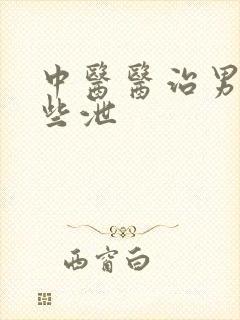 中醫醫治男
些泄
西窗白